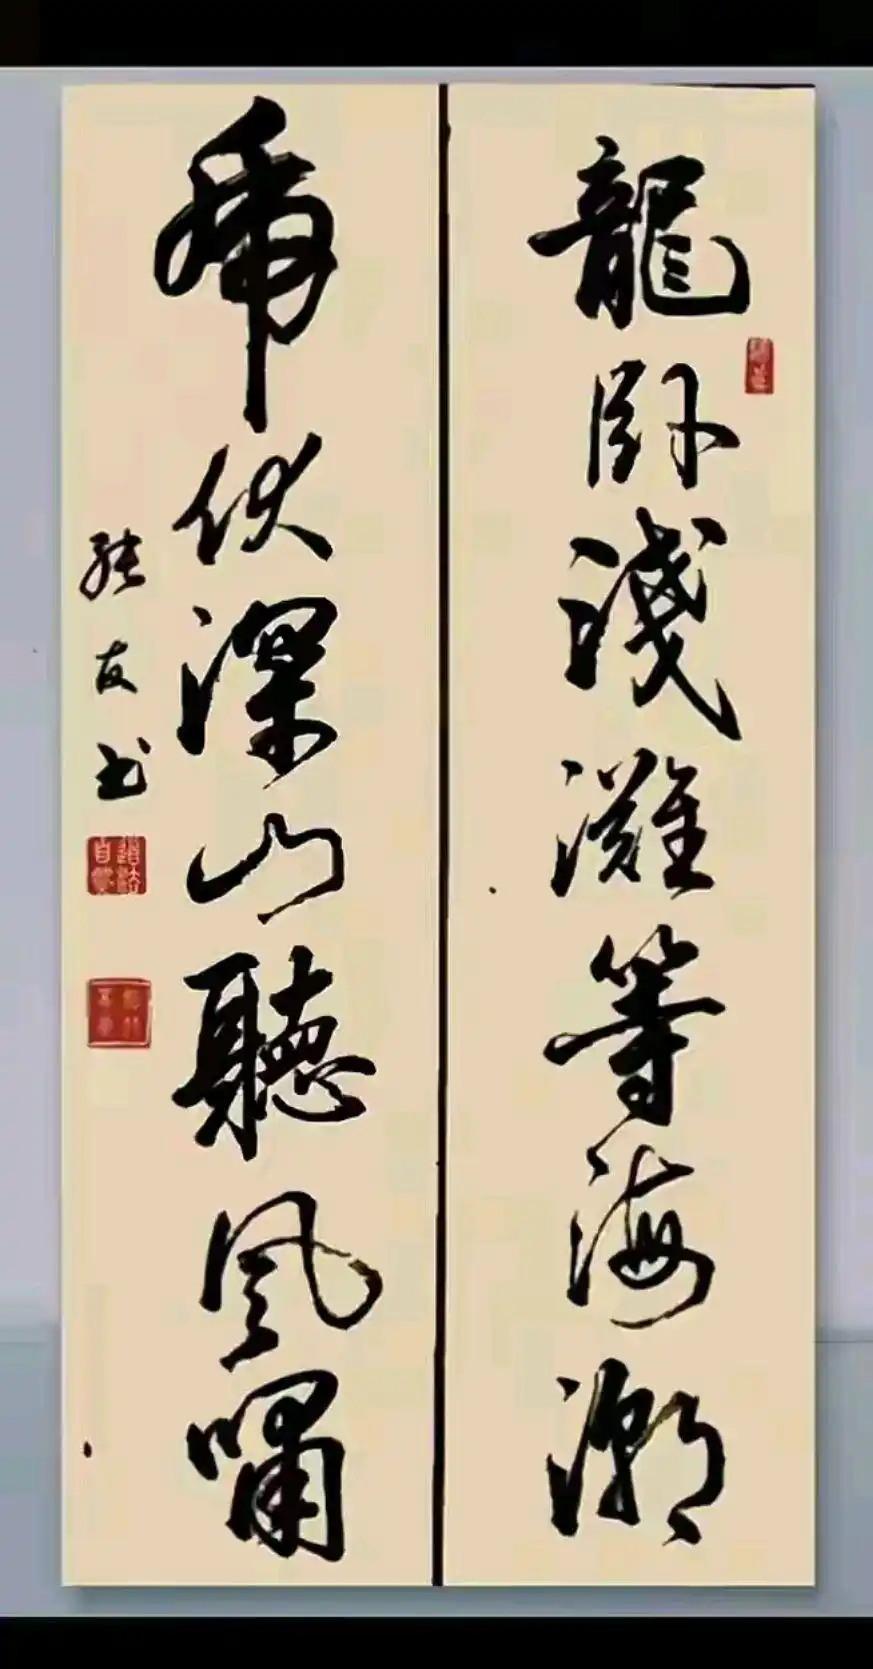 龍卧淺灘等海潮
虎伏深山聽風嘯
友书